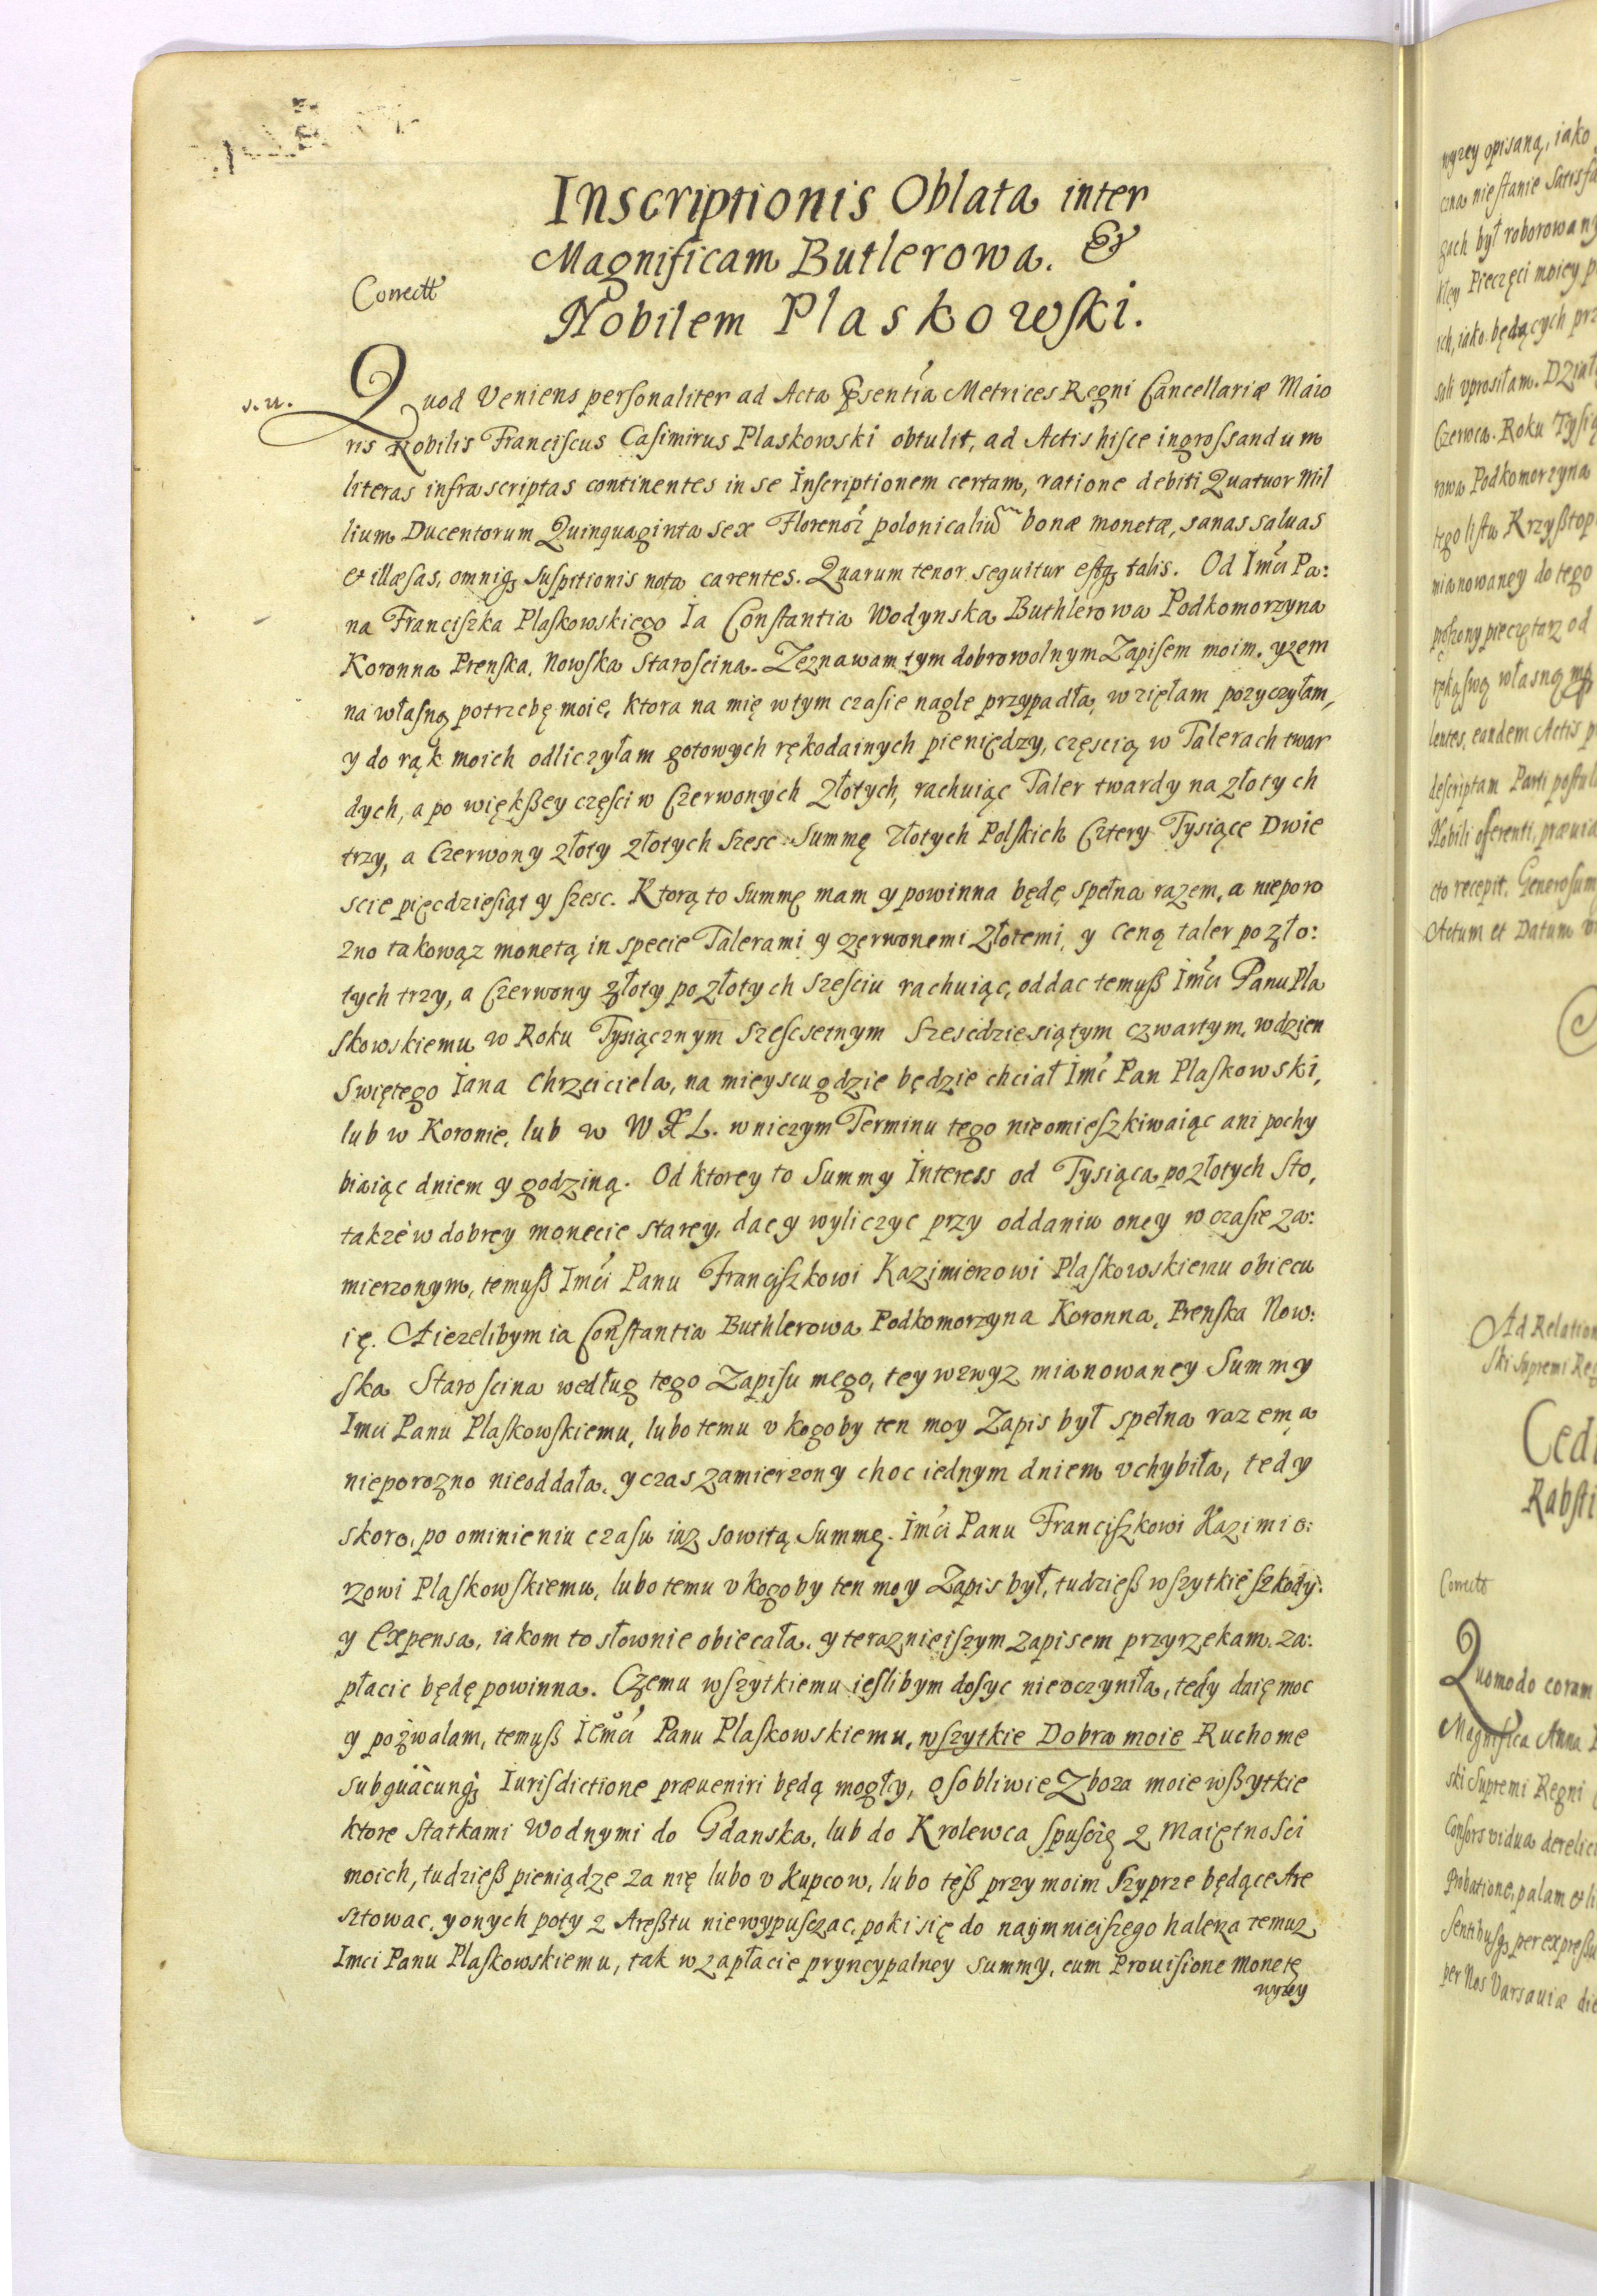 Inscriptionis Oblata inter
Magnificam Butlerowa. &
Correctt
Nobilem Plaskowski.
s. u.
Quod Veniens personaliter ad Acta Psentia Metrices Regni Cancellariæ Maio
ris Nobilis Franciscus Casimirus Plaskowski obtulit, ad Actis hisce ingrossandum
literas infra scriptas continentes in se Inscriptionem certam, ratione debiti Quatuor Mil
lium Ducentorum Quinquaginta sex Florenor polonicaliu bonæ monetæ, sanas saluas
et illæsas, omniq suspitionis nota carentes. Quarum tenor sequitur estq talis. Od Imci Pa:
na Franciszka Plaskowskiego Ia Constantia Wodynska Buthlerowa Podkomorzyna
Koronna Prenska, Nowska Staroscina. Zeznawam tym dobrowolnym Zapisem moim. yzem
na własną potrzebę moię, ktora na mię w tym czasie nagle przypadła, wzięłam pozyczyłam,
y do rąk moich odliczyłam gotowych rękodainych pieniędzy, częscią w Talerach twar
dych, a po więkßey częsci w Czerwonych Złotych, rachuiąc Taler twardy na złotych
trzy, a Czerwony złoty złotych szesc Summę Złotych Polskich Cztery Tysiące Dwie
scie pięcdziesiąt y szesc. Ktorą to Summę mam y powinna będę spełna razem, a nieporo
zno takowąz monetą in specie Talerami y czerwonemi Złotemi, y ceną taler po zło:
tych trzy, a Czerwony złoty po złotych szesciu rachuiąc, oddac temuß Imci Panu Pla
skowskiemu w Roku Tysiącznym szescsetnym szescdziesiątym czwartym, w dzien
Swiętego Iana Chrzciciela, na mieyscu gdzie będzie chciał Imc Pan Plaskowski,
lub w Koronie, lub w W X L. w niczym Terminu tego nieomieszkiwaiąc ani pochy
biaiąc dniem y godziną. Od ktorey to Summy Interess od Tysiąca po złotych sto,
takze w dobrey monecie starey, dac y wyliczyc przy oddaniu oney w czasie za:
mierzonym, temuß Imci Panu Franciszkowi Kazimierzowi Plaskowskiemu obiecu
ię. A iezelibym ia Constantia Buthlerowa Podkomorzyna Koronna, Prenska Now:
ska Staroscina według tego Zapisu mego, tey wzwyz mianowaney Summy
Imci Panu Plaskowskiemu, lubo temu v kogoby ten moy Zapis był spełna razem a
nieporozno nieoddała, y czas zamierzony choc iednym dniem vchybiła, tedy
skoro, po ominieniu czasu iuz sowitą Summę. Imci Panu Franciszkowi Kazimie:
rzowi Plaskowskiemu, lubo temu v kogoby ten moy Zapis był, tudzieß wszytkie szkody:
y Expensa, iakom to słownie obiecała, y terazniejszym zapisem przyrzekam, za:
płacic będę powinna. Czemu wszytkiemu ieslibym dosyc nievczyniła, tedy daię moc
y pozwalam, temuß Iemci Panu Plaskowskiemu, wszytkie Dobra moie Ruchome
sub quacunq Iurisdictione præueniri będą mogły, osobliwie Zboza moie wßytkie
ktore Statkami Wodnymi do Gdanska, lub do Krolewca spuszczę z Maiętnosci
moich, tudzieß pieniądze za nię lubo v kupcow, lubo teß przy moim Szyprze będące Are
sztowac, y onych poty z Areßtu niewypusczac, poki się do naymnieiszego halerza temuz
Imci Panu Plaskowskiemu, tak w zapłacie pryncypalney summy, cum Prouisione monetę
wyzey
wyzey opisaną, iako
czna nie stanie Satisfa
gach był roborowany
kley Pieczęci moiey p
ich, iako będących prz
sali vprosiłam. Dział
Czerwca. Roku Tysią
rowa Podkomorzyna
tego listu Krzyßtop
mianowaney do tego
proszony pieczętarz od
ręką swą własną mp
lentes, eandem Actis p
descriptam Parti postul
Nobili offerenti, præuia
cto recepit. Generosum
Actum et Datum
Ad Relation
ski Supremi Reg
Cedi
Rabsti
Correcto
Quomodo coram
Magnifica Anna
ski Supremi Regni
Consors vidua derelic
Probatione, palam et li
sentibusq per expressu
per Nos Varsauiæ die